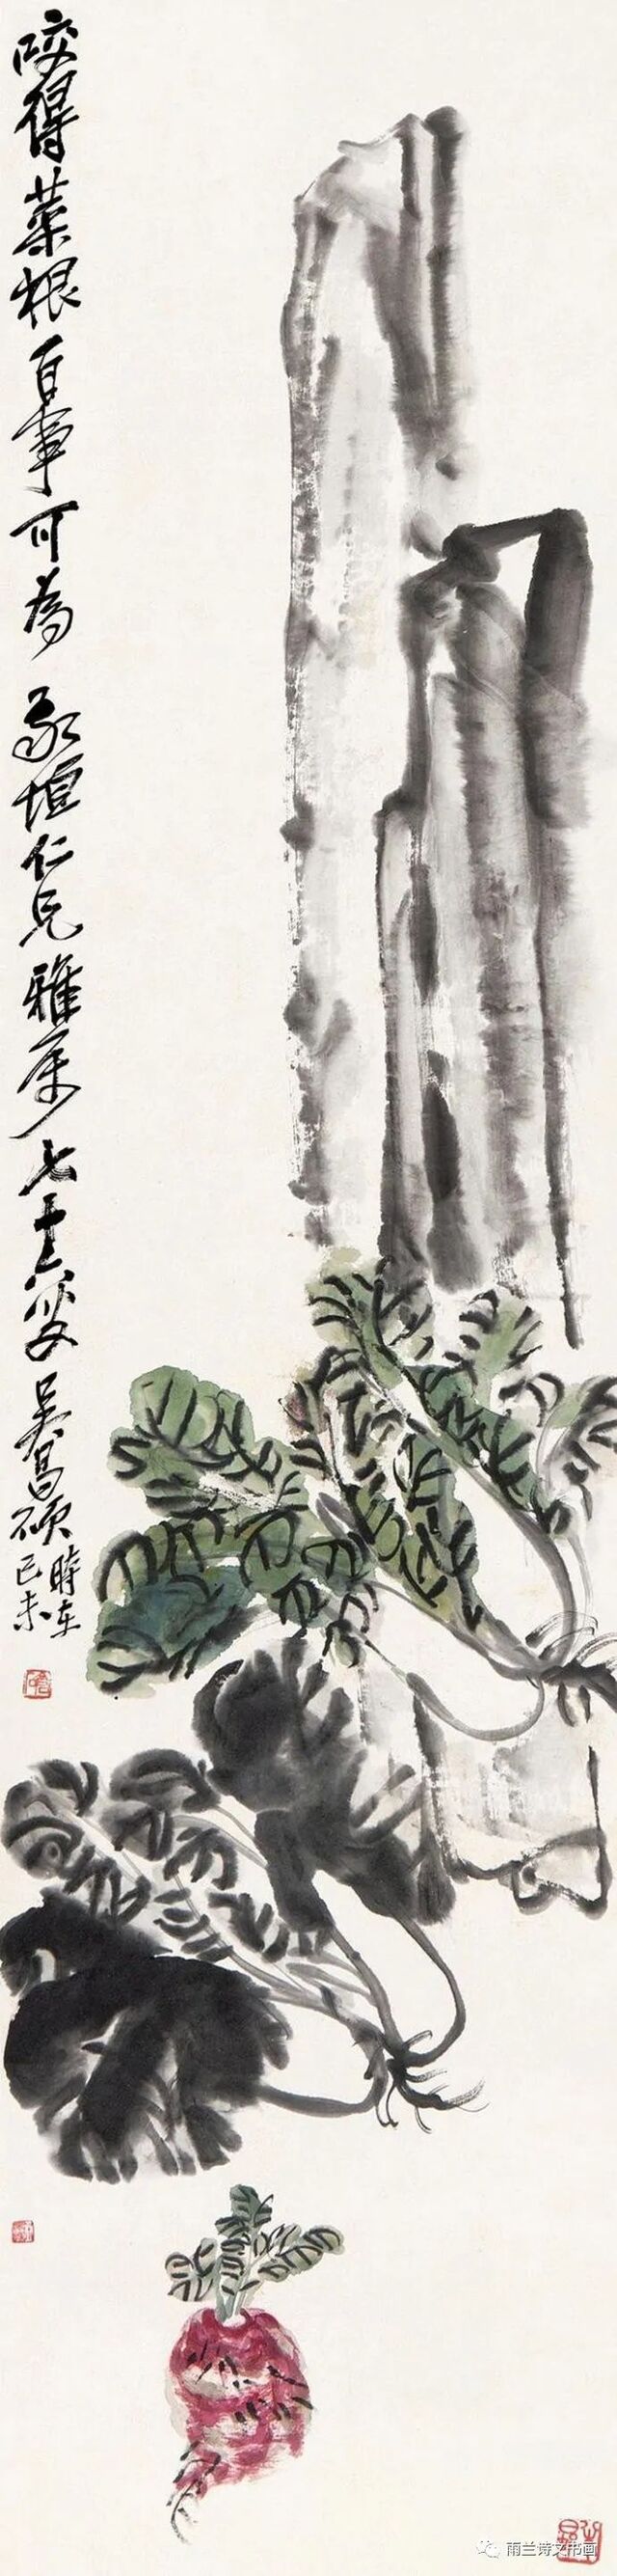 咬得菜根百事可為
敬垣仁兄雅屬七十六叟吳昌碩
時在
己未
雨兰诗文书画